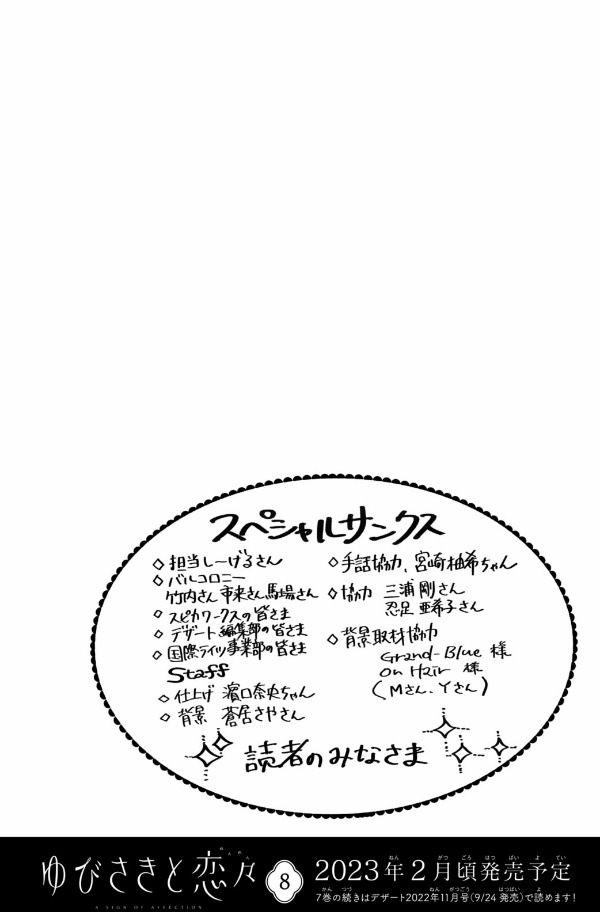 スペシャルサンクス
◇担当しーげるさん
◇バルコロニー
竹内さん 市来さん 馬場さん
◇スピカワークスの皆さま
◇デザート編集部の皆さま
◇国際ライツ事業部の皆さま
Staff
◇仕上げ 濵口奈央ちゃん
◇背景 蒼居さやさん
◇手話協力、宮崎柚希ちゃん
◇協力 三浦 剛さん
忍足 亜希子さん
◇背景取材協力
Grand-Blue 様
On Hair 様
(Mさん、Yさん)
読者のみなさま
ゆびさきと恋々 8
れんれん
A SIGN OF AFFECTION
2023年2月頃発売予定
ねん がつ ごろ はつ ばい よ てい
7巻の続きはデザート2022年11月号(9/24 発売)で読めます!
かん つづ ねん がつごう はつばい よ